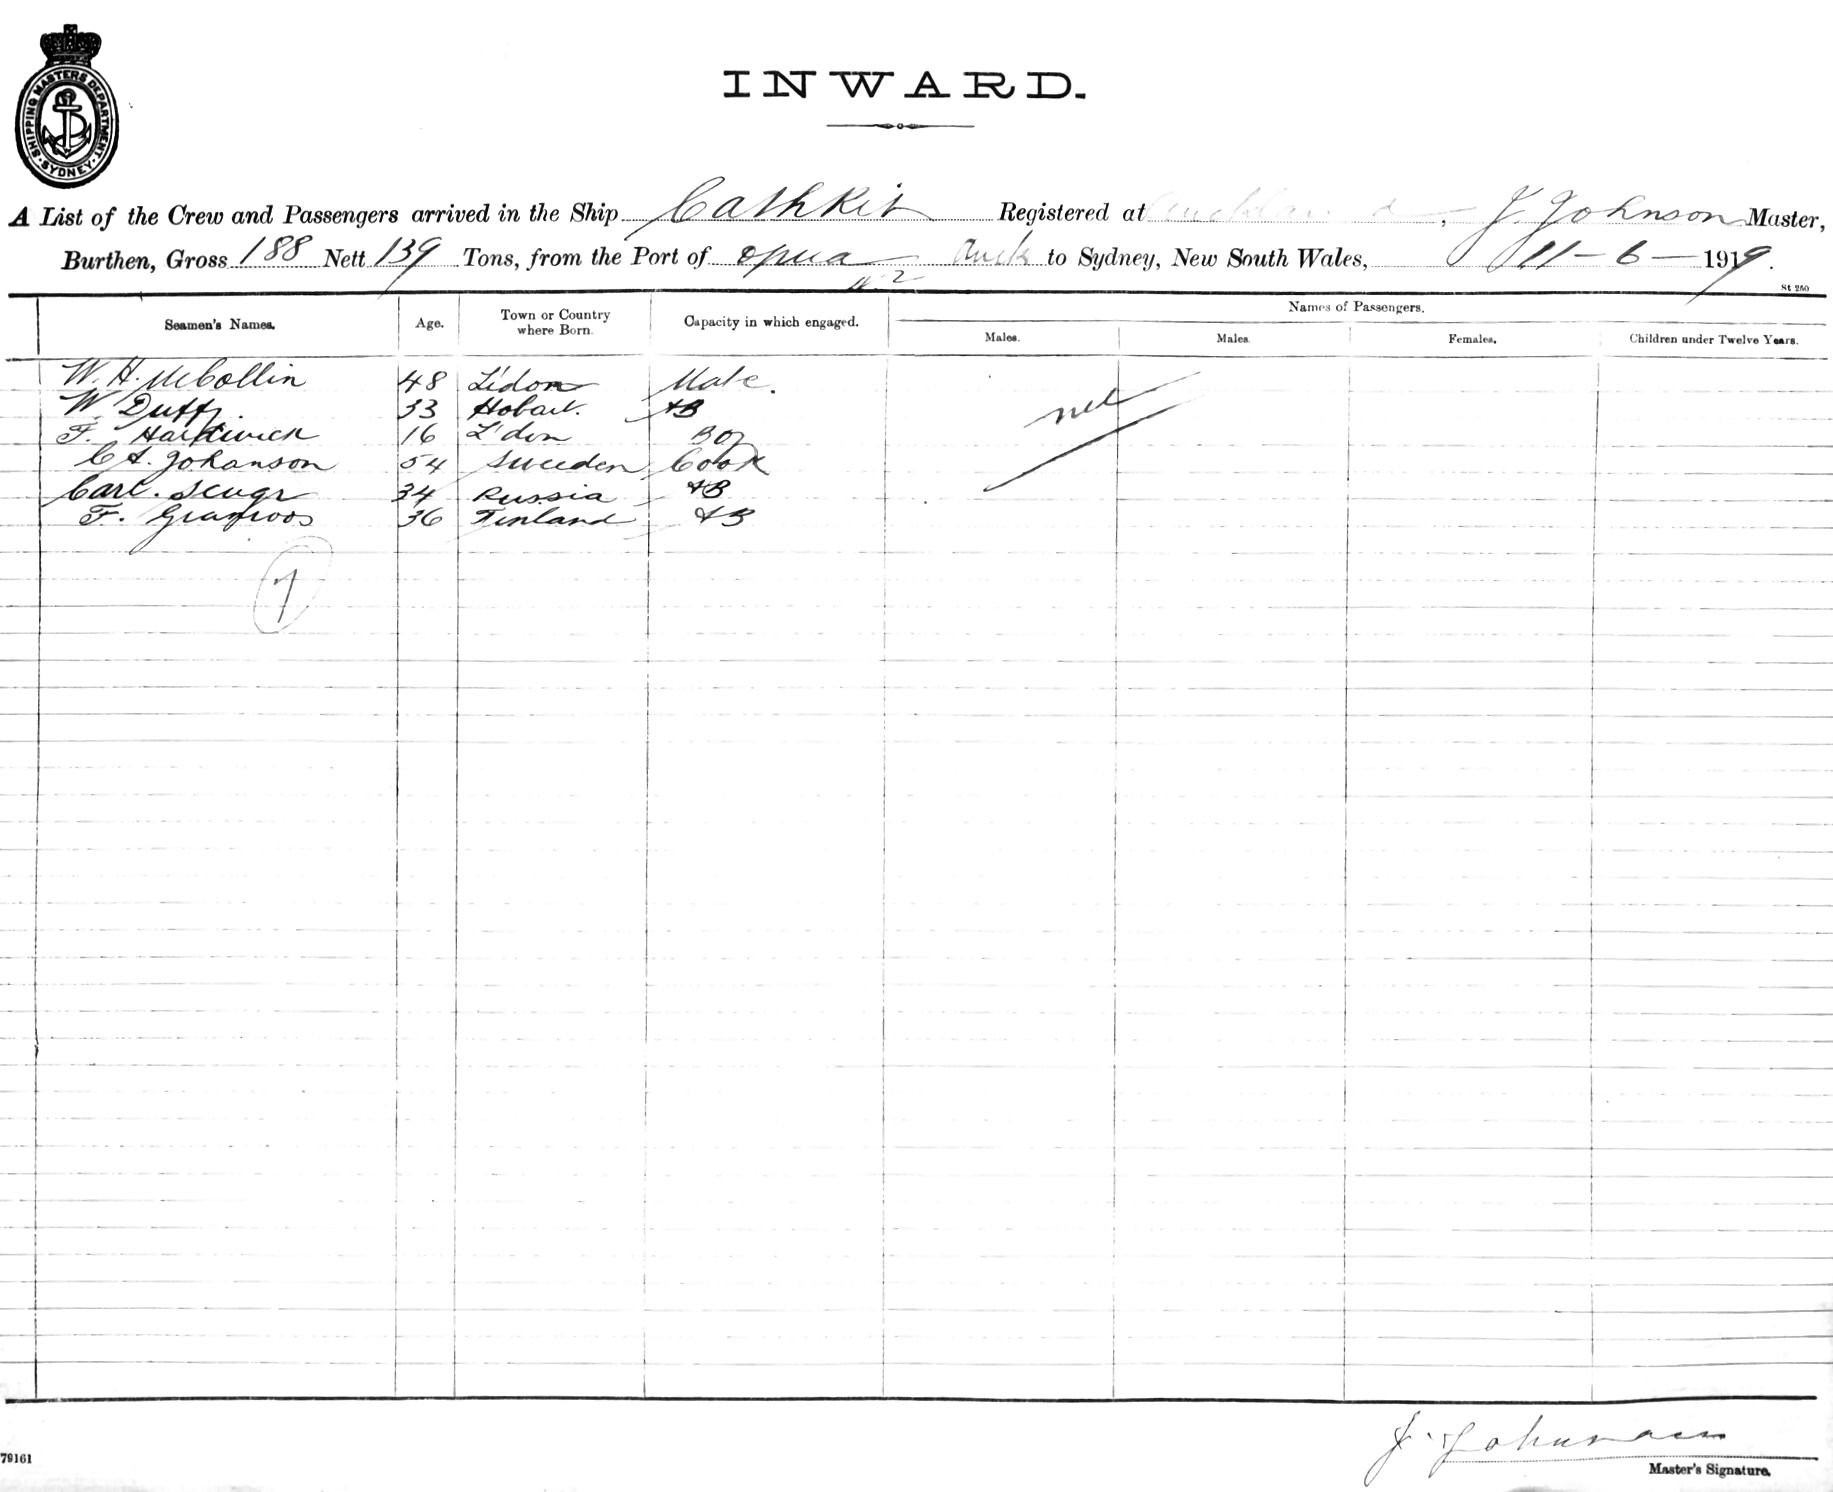 SHIPPING MASTERS DEPARTMENT. SYDNEY.
INWARD.
A List of the Crew and Passengers arrived in the Ship Cathkit Registered at Auckland, J. Johnson Master,
Burthen, Gross 188 Nett 139 Tons, from the Port of Opua Auck to Sydney, New South Wales, 11-6-1919.
NZ
St 250
Seamen's Names. Age. Town or Country where Born. Capacity in which engaged. Names of Passengers.
Males. Males. Females. Children under Twelve Years.
W. H. McCollin 48 L'don Mate.
W. Duffy. 33 Hobart. AB
F. Hardwick 16 L'don Boy
C A. Johanson 54 Sweeden Cook
Carl. 34 Russia AB
F. Granroos 36 Finland AB
nil
7
J. Johnson
79161
Master's Signature.